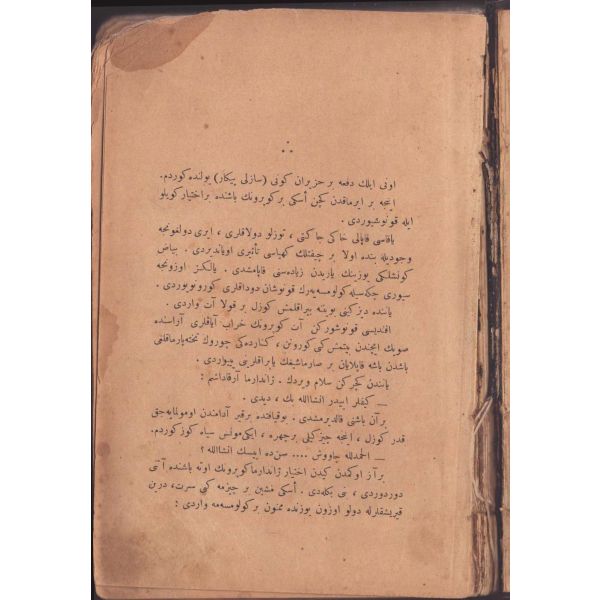 اونی ایلك دفعه بر حزیران كونی (سازلی پیكار) یولنده كوردم.
اینجه بر ایرماقدن كچن أسكی بر كوپرونك باشنده براختیار كویلو
ایله قونوشیوردی .
یاقاسی قاپالی خاكی جاكتی ، توزلو دولاقلری ، ایری دولغونجه
وجودیله بنده اولا بر چیفتلك كهیاسی تأثیری اویاندیردی . بیاض
كونشلكی یوزینك یاریدن زیاده‌سنی قاپامشدی . یالكز اوزونجه
سیوری چكه‌سیله كولومسه‌یه‌رك قونوشان دوداقلری كورونویوردی .
یاننده دیزكینی بویننه بیراقلمش كوزل بر قولا آت واردی .
افندیسی قونوشوركن آت كوپرونك خراب آیاقلری آراسنده
صویك ایچندن بیتمش كبی كورونن ، كنارده‌كی چوروك تخته‌پارماقلغی
باشدن باشه قاپلایان بر صارماشیغك یاپراقلرینی یییوردی .
یانندن كچركن سلام ویردك . ژاندارما آرقاداشم :
— كیفلر اییدر انشاالله بك ، دیدی .
برآن باشنی قالدیرمشدی . بوقیافتده برقیر آدامندن اومولمایه‌جق
قدر كوزل ، اینجه چیزكیلی برچهره ، ایكی مونس سیاه كوز كوردم.
— الحمدلله چاووش .... سن‌ده اییسك انشاالله ؟
بر آز اوكمدن كیدن اختیار ژاندارما كوپرونك اوته باشنده آتنی
دوردوردی ، بنی بكله‌دی . أسكی مشین بر چیزمه كبی سرت، درین
قیریشقلرله دولو اوزون یوزنده ممنون بر كولومسه‌مه واردی :